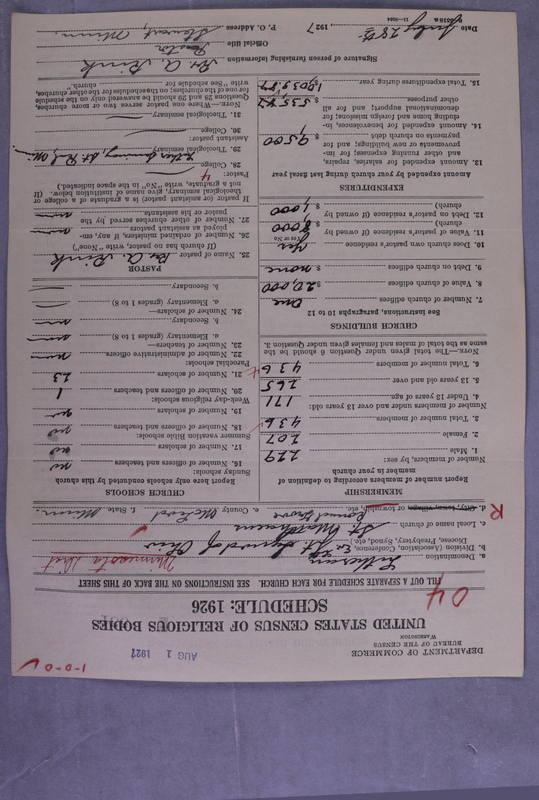 1-0-0
DEPARTMENT OF COMMERCE
BUREAU OF THE CENSUS
WASHINGTON
AUG 1 1927
UNITED STATES CENSUS OF RELIGIOUS BODIES
SCHEDULE: 1926
04
FILL OUT A SEPARATE SCHEDULE FOR EACH CHURCH. SEE INSTRUCTIONS ON THE BACK OF THIS SHEET
a. Denomination Lutheran
Minnesota Dist
b. Division (Association, Conference,
Diocese, Presbytery, Synod, etc.) Synod of Ohio
c. Local name of church St. Matthaeus
d. City, town, village, or township, etc. Round Grove e. County McLeod f. State Minn.
R
MEMBERSHIP
Report number of members according to definition of
member in your church
Number of members, by sex:
1. Male 229
2. Female 207
3. Total number of members 436
Number of members under and over 13 years old:
4. Under 13 years of age 171
5. 13 years old and over 265
6. Total number of members 436
NOTE.—The total given under Question 6 should be the
same as the total of males and females given under Question 3.
CHURCH BUILDINGS
See instructions, paragraphs 10 to 12
7. Number of church edifices One
8. Value of church edifices $ 20,000
9. Debt on church edifices none
10. Does church own pastor's residence Yes
(Yes or No)
11. Value of pastor's residence (if owned by
church) $ 8000
12. Debt on pastor's residence (if owned by
church) $ 1,000
EXPENDITURES
Amount expended by your church during last fiscal year
13. Amount expended for salaries, repairs,
and other running expenses; for im-
provements or new buildings; and for
payments on church debt $ 9500
14. Amount expended for benevolences, in-
cluding home and foreign missions; for
denominational support; and for all
other purposes $ 535.87
15. Total expenditures during year
CHURCH SCHOOLS
Report here only schools conducted by this church
Sunday schools:
16. Number of officers and teachers no
17. Number of scholars no
Summer vacation Bible schools:
18. Number of officers and teachers no
19. Number of scholars no
Week-day religious schools:
20. Number of officers and teachers 1
21. Number of scholars 23
Parochial schools:
22. Number of administrative officers
23. Number of teachers—
a. Elementary (grades 1 to 8)
b. Secondary
24. Number of scholars—
a. Elementary (grades 1 to 8)
b. Secondary
PASTOR
25. Name of pastor Rev. A. Rink
(If church has no pastor, write "None")
26. Number of ordained ministers, if any, em-
ployed as assistant pastors
27. Number of other churches served by the
pastor or his assistants
If pastor (or assistant pastor) is a graduate of a college or
theological seminary, give name of institution below. (If
not a graduate, write "No" in the space indicated.)
Pastor:
28. College
29. Theological seminary Luther Seminary, St. Paul, Minn.
4
Assistant pastor:
30. College
31. Theological seminary
NOTE.—Where one pastor serves two or more churches,
Questions 28 and 29 should be answered only on the schedule
for one of the churches; on the schedules for the other churches,
write "See schedule for church."
Signature of person furnishing information Rev. A. Rink
Official title Pastor
P. O. Address Stewart, Minn.
Date July 28th, 1927